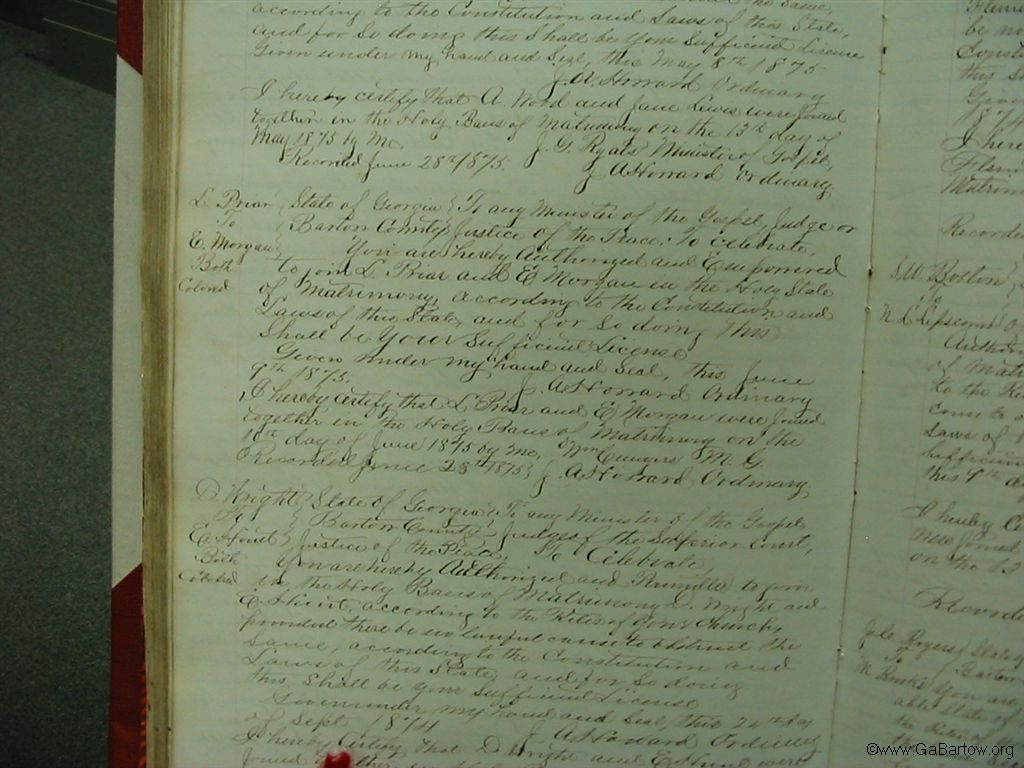 according to the Constitution and Laws of this State,
and for so doing this Shall be your Sufficient License
Given under my hand and Seal, this May 8th 1875
J. A. Howard Ordinary
I hereby certify that A. Wood and Jane were Joined
together in the Holy Bans of Matrimony on the 13th day of
May 1875 by Me, J. G. Minister of Gospel,
Recorded June 28th 1875. J. A. Howard Ordinary
L. Prior
To
E. Morgan
Both
Colored
State of Georgia To any Minister of the Gospel, Judge or
Bartow County Justice of the Peace: To celebrate,
You are hereby Authorized and Empowered
to join L Prior and E Morgan in the Holy State
of Matrimony, according to the Constitution and
Laws of this State, and for So doing This
Shall be Your Sufficient License
Given under my hand and Seal, this June
9th 1875. J. A. Howard Ordinary
I hereby certify that L Prior and E Morgan were Joined
together in the Holy Bans of Matrimony on the
day of June 1875 by me, M. G.
Recorded June 28th 1875 J. A. Howard Ordinary
D. Wright
To
Both
Colored
State of Georgia To any Minister of the Gospel
Bartow County Judge of the Superior Court,
Justice of the Peace, To Celebrate,
You are hereby Authorized and to join
in the Holy Bans of Matrimony D. Wright and
according to the Rites of your Church,
provided there be no lawful cause to obstruct the
Same, according to the Constitution and
Laws of this State, and for So doing
this Shall be your Sufficient License
Given under my hand and Seal, this day
of Sept 1874 J. A. Howard Ordinary
I hereby Certify that D Wright and E were
be no
this
1874
I here
Matrimon
Recorded
W. Bolton
To
N. L. Lipscomb
of
to the
Laws of
this 9th
I hereby C
were Joined
on the 13
Recorded
Rogers State
To Bartow
You are
©www.GaBartow.org